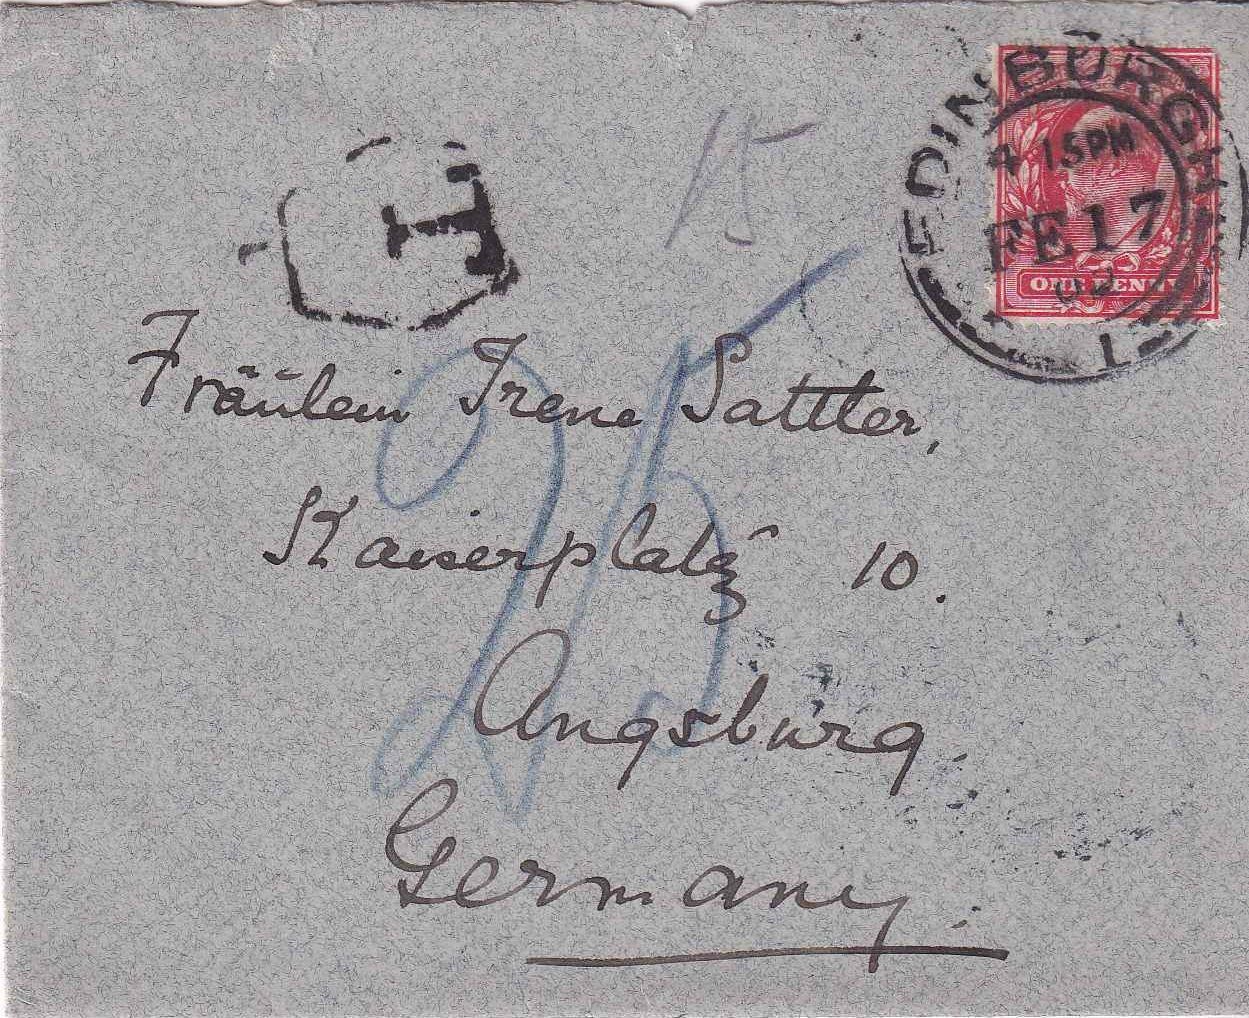 EDINBURGH
4 15PM
FE 17
02
1
ONE PENNY
15
T
25
Fräülein Irene Sattler,
Kaiserplatz 10.
Augsburg.
Germany.